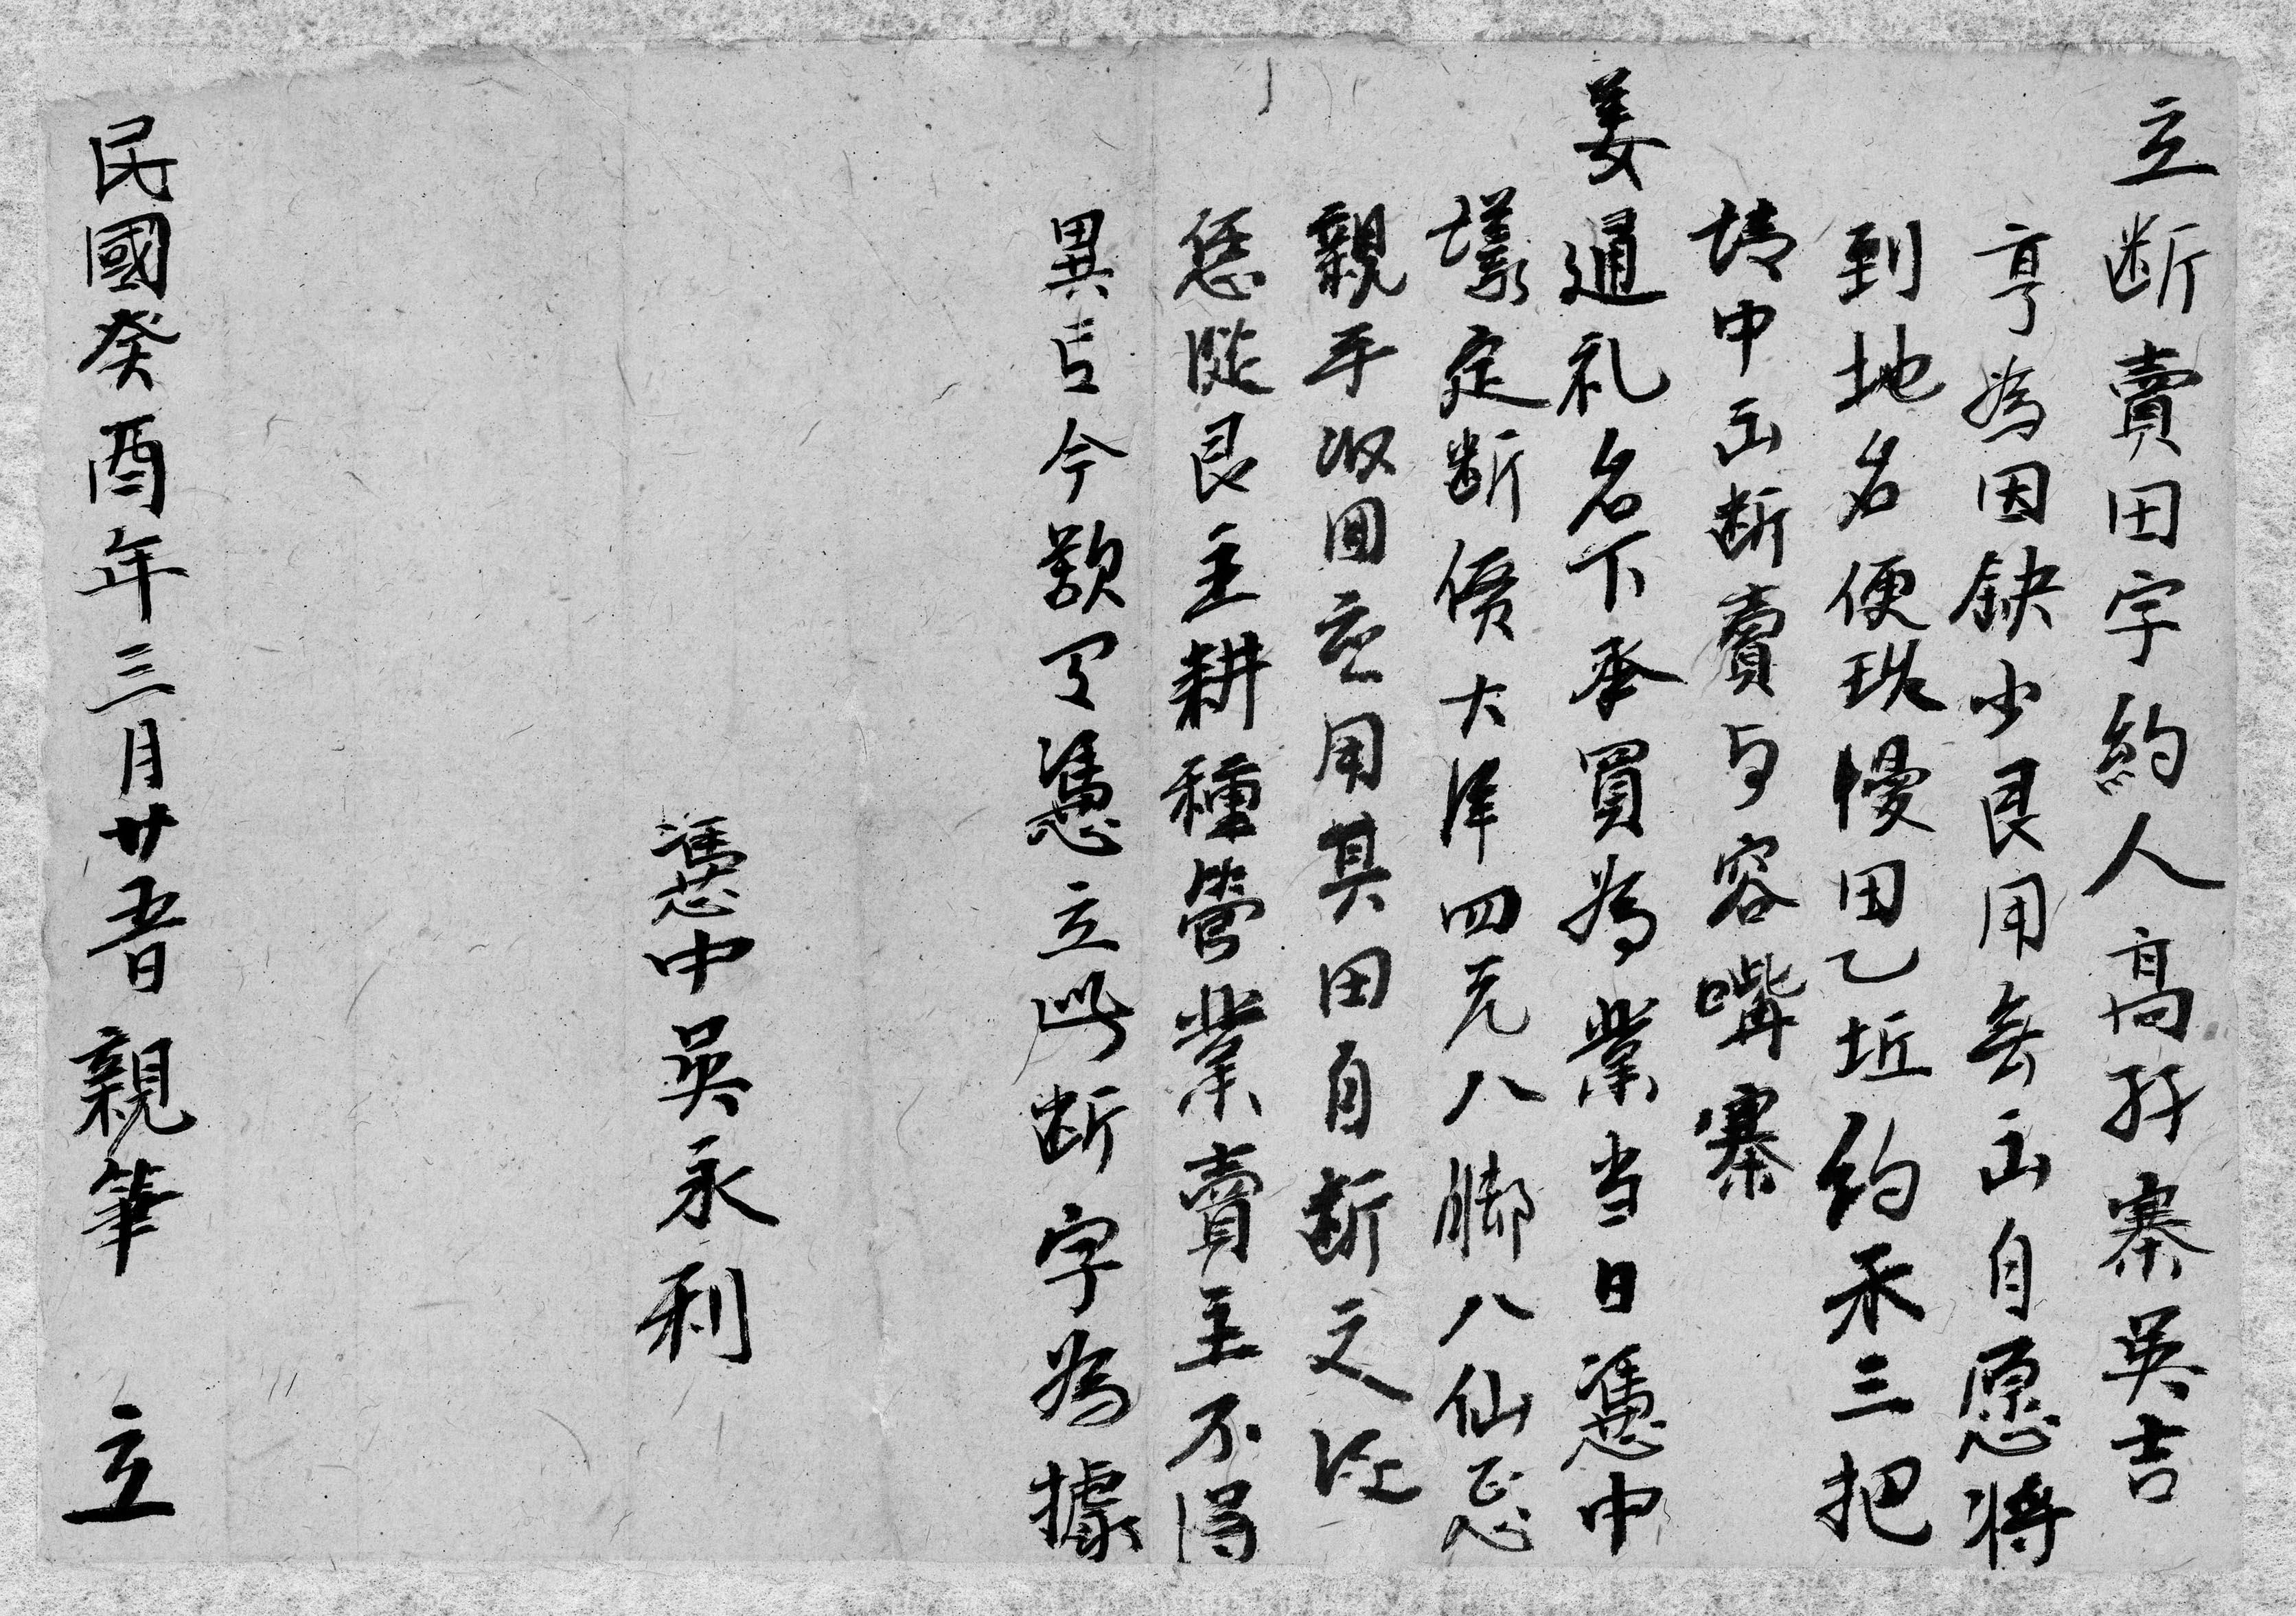 立断賣田字約人高孖寨吳吉
亨為因缺少艮用無出自愿将
到地名便玭慢田乙坵約禾三把
請中出断賣与容嘴寨
姜通礼名下承買為業当日憑中
議定断價大洋四元八脚八仙
親手收回应用其田自断之後
恁從艮主耕種管業賣主不得
異言今欲了憑立此断字為據
憑中吳永利
民國癸酉年三月廿五日親筆 立